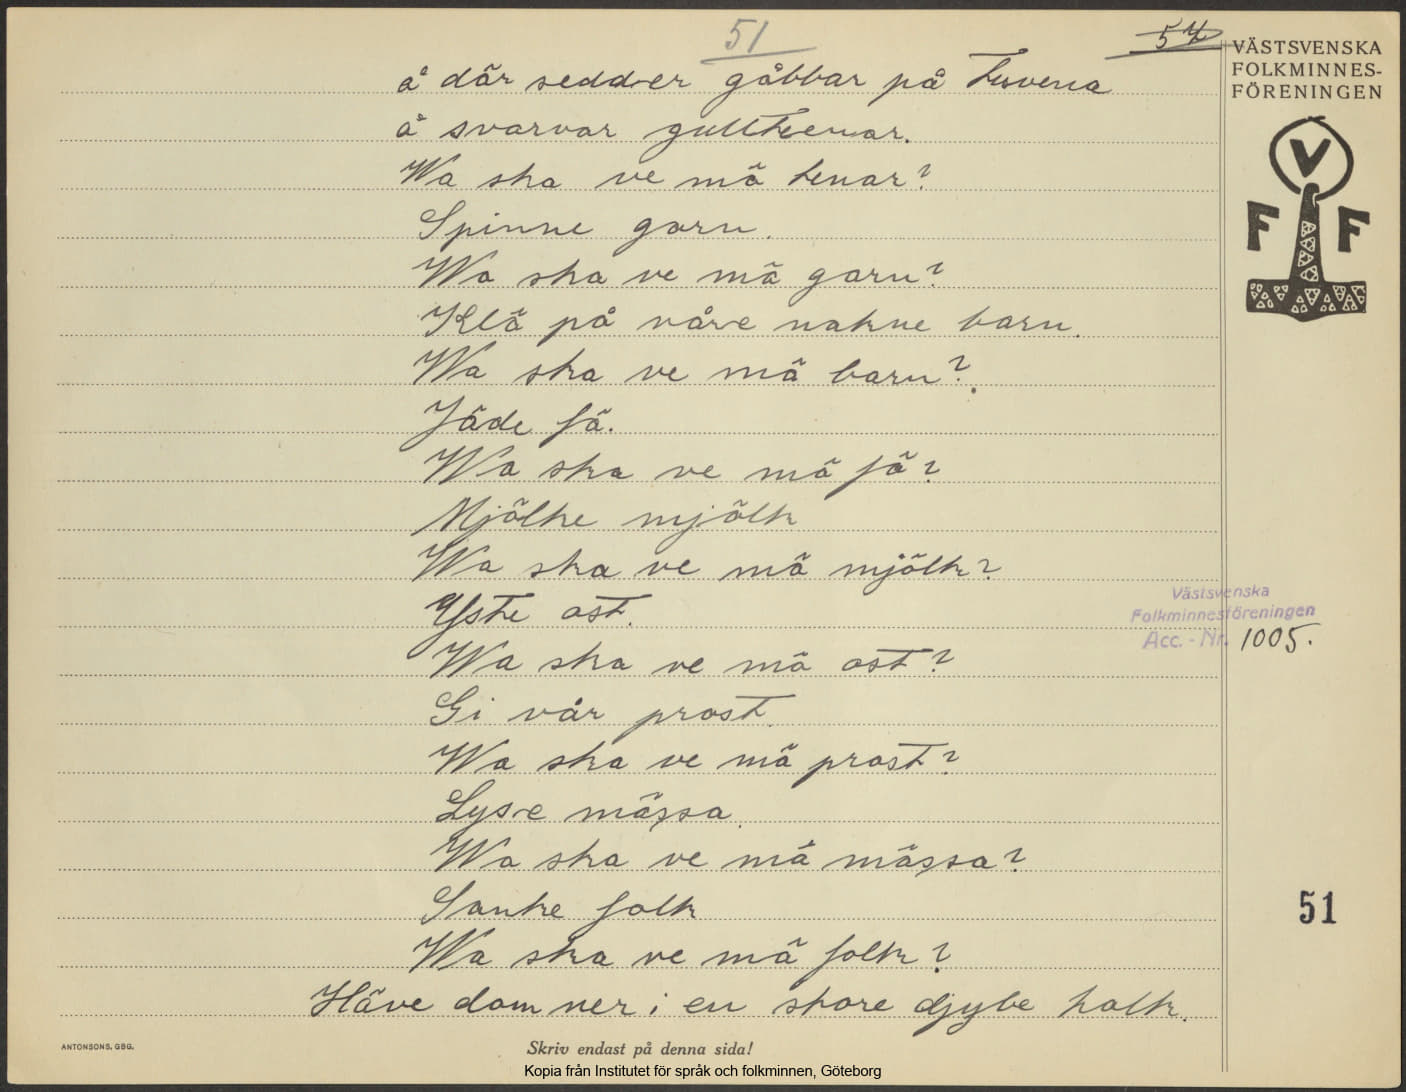 51
57
VÄSTSVENSKA
FOLKMINNES-
FÖRENINGEN
V
F F
å där sedder gåbbar på tuvena
å svarvar gulltenar.
Wa ska ve mä tenar?
Spinne garn.
Wa ska ve mä garn?
Klä på våre nakne barn.
Wa ska ve mä barn?
Jäde fä.
Wa ska ve mä fä?
Mjölke mjölk
Wa ska ve mä mjölk?
Yste ost.
Västsvenska
Folkminnesföreningen
Acc. - Nr. 1005.
Wa ska ve mä ost?
Gi vår prost.
Wa ska ve mä prost?
Lyse mässa.
Wa ska ve mä mässa?
Sanke folk
51
Wa ska ve mä folk?
Häve dom ner i en store djybe holk.
ANTONSONS, GBG.
Skriv endast på denna sida!
Kopia från Institutet för språk och folkminnen, Göteborg